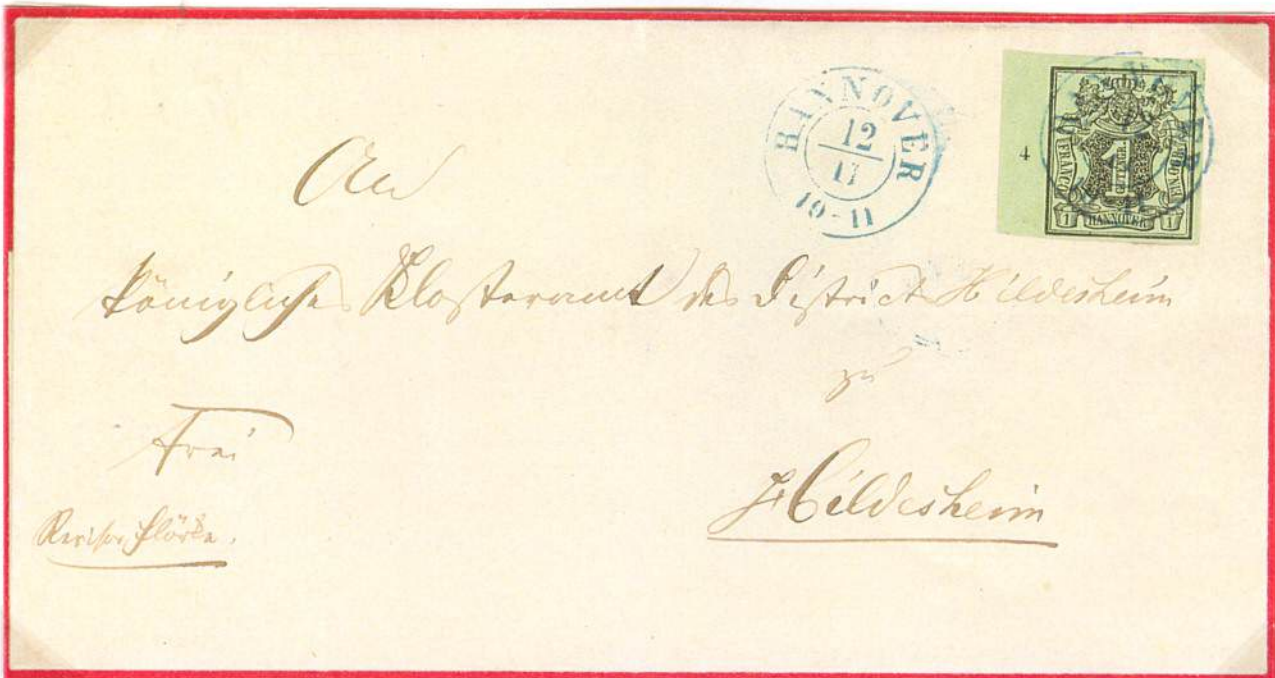 HANNOVER
12
11
10-11
HANNOVER
4
FRANCO
1
GUTENGR.
1 HANNOVER 1
An
Königliches Klosteramt des District Hildesheim
zu
Frei
Hildesheim
Revisor Flörke.